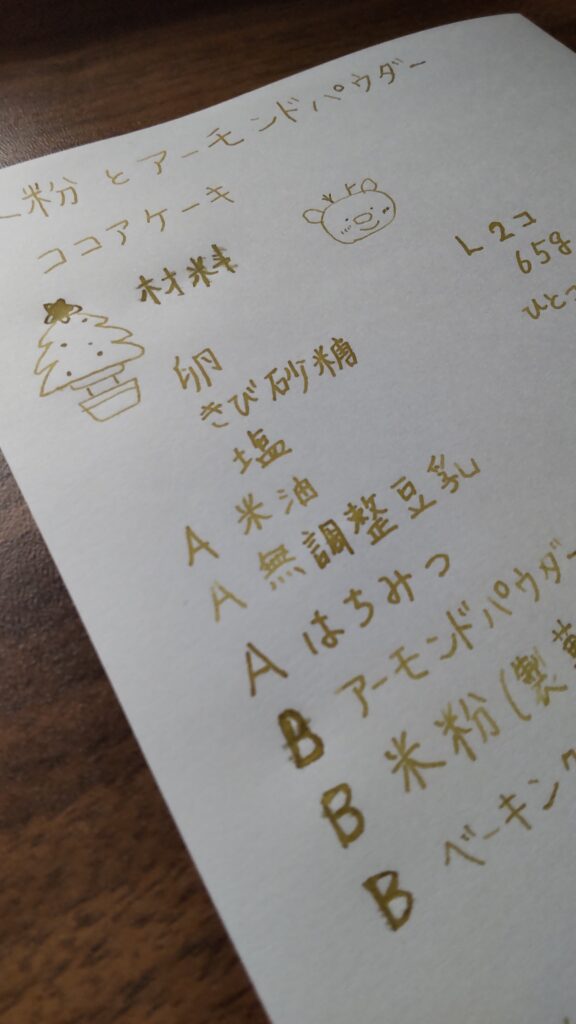 粉とアーモンドパウダー
ココアケーキ
材料
卵 L2コ
きび砂糖 65g
塩 ひとつ
A 米油
A 無調整豆乳
A はちみつ
B アーモンドパウダー
B 米粉(製菓
B ベーキング